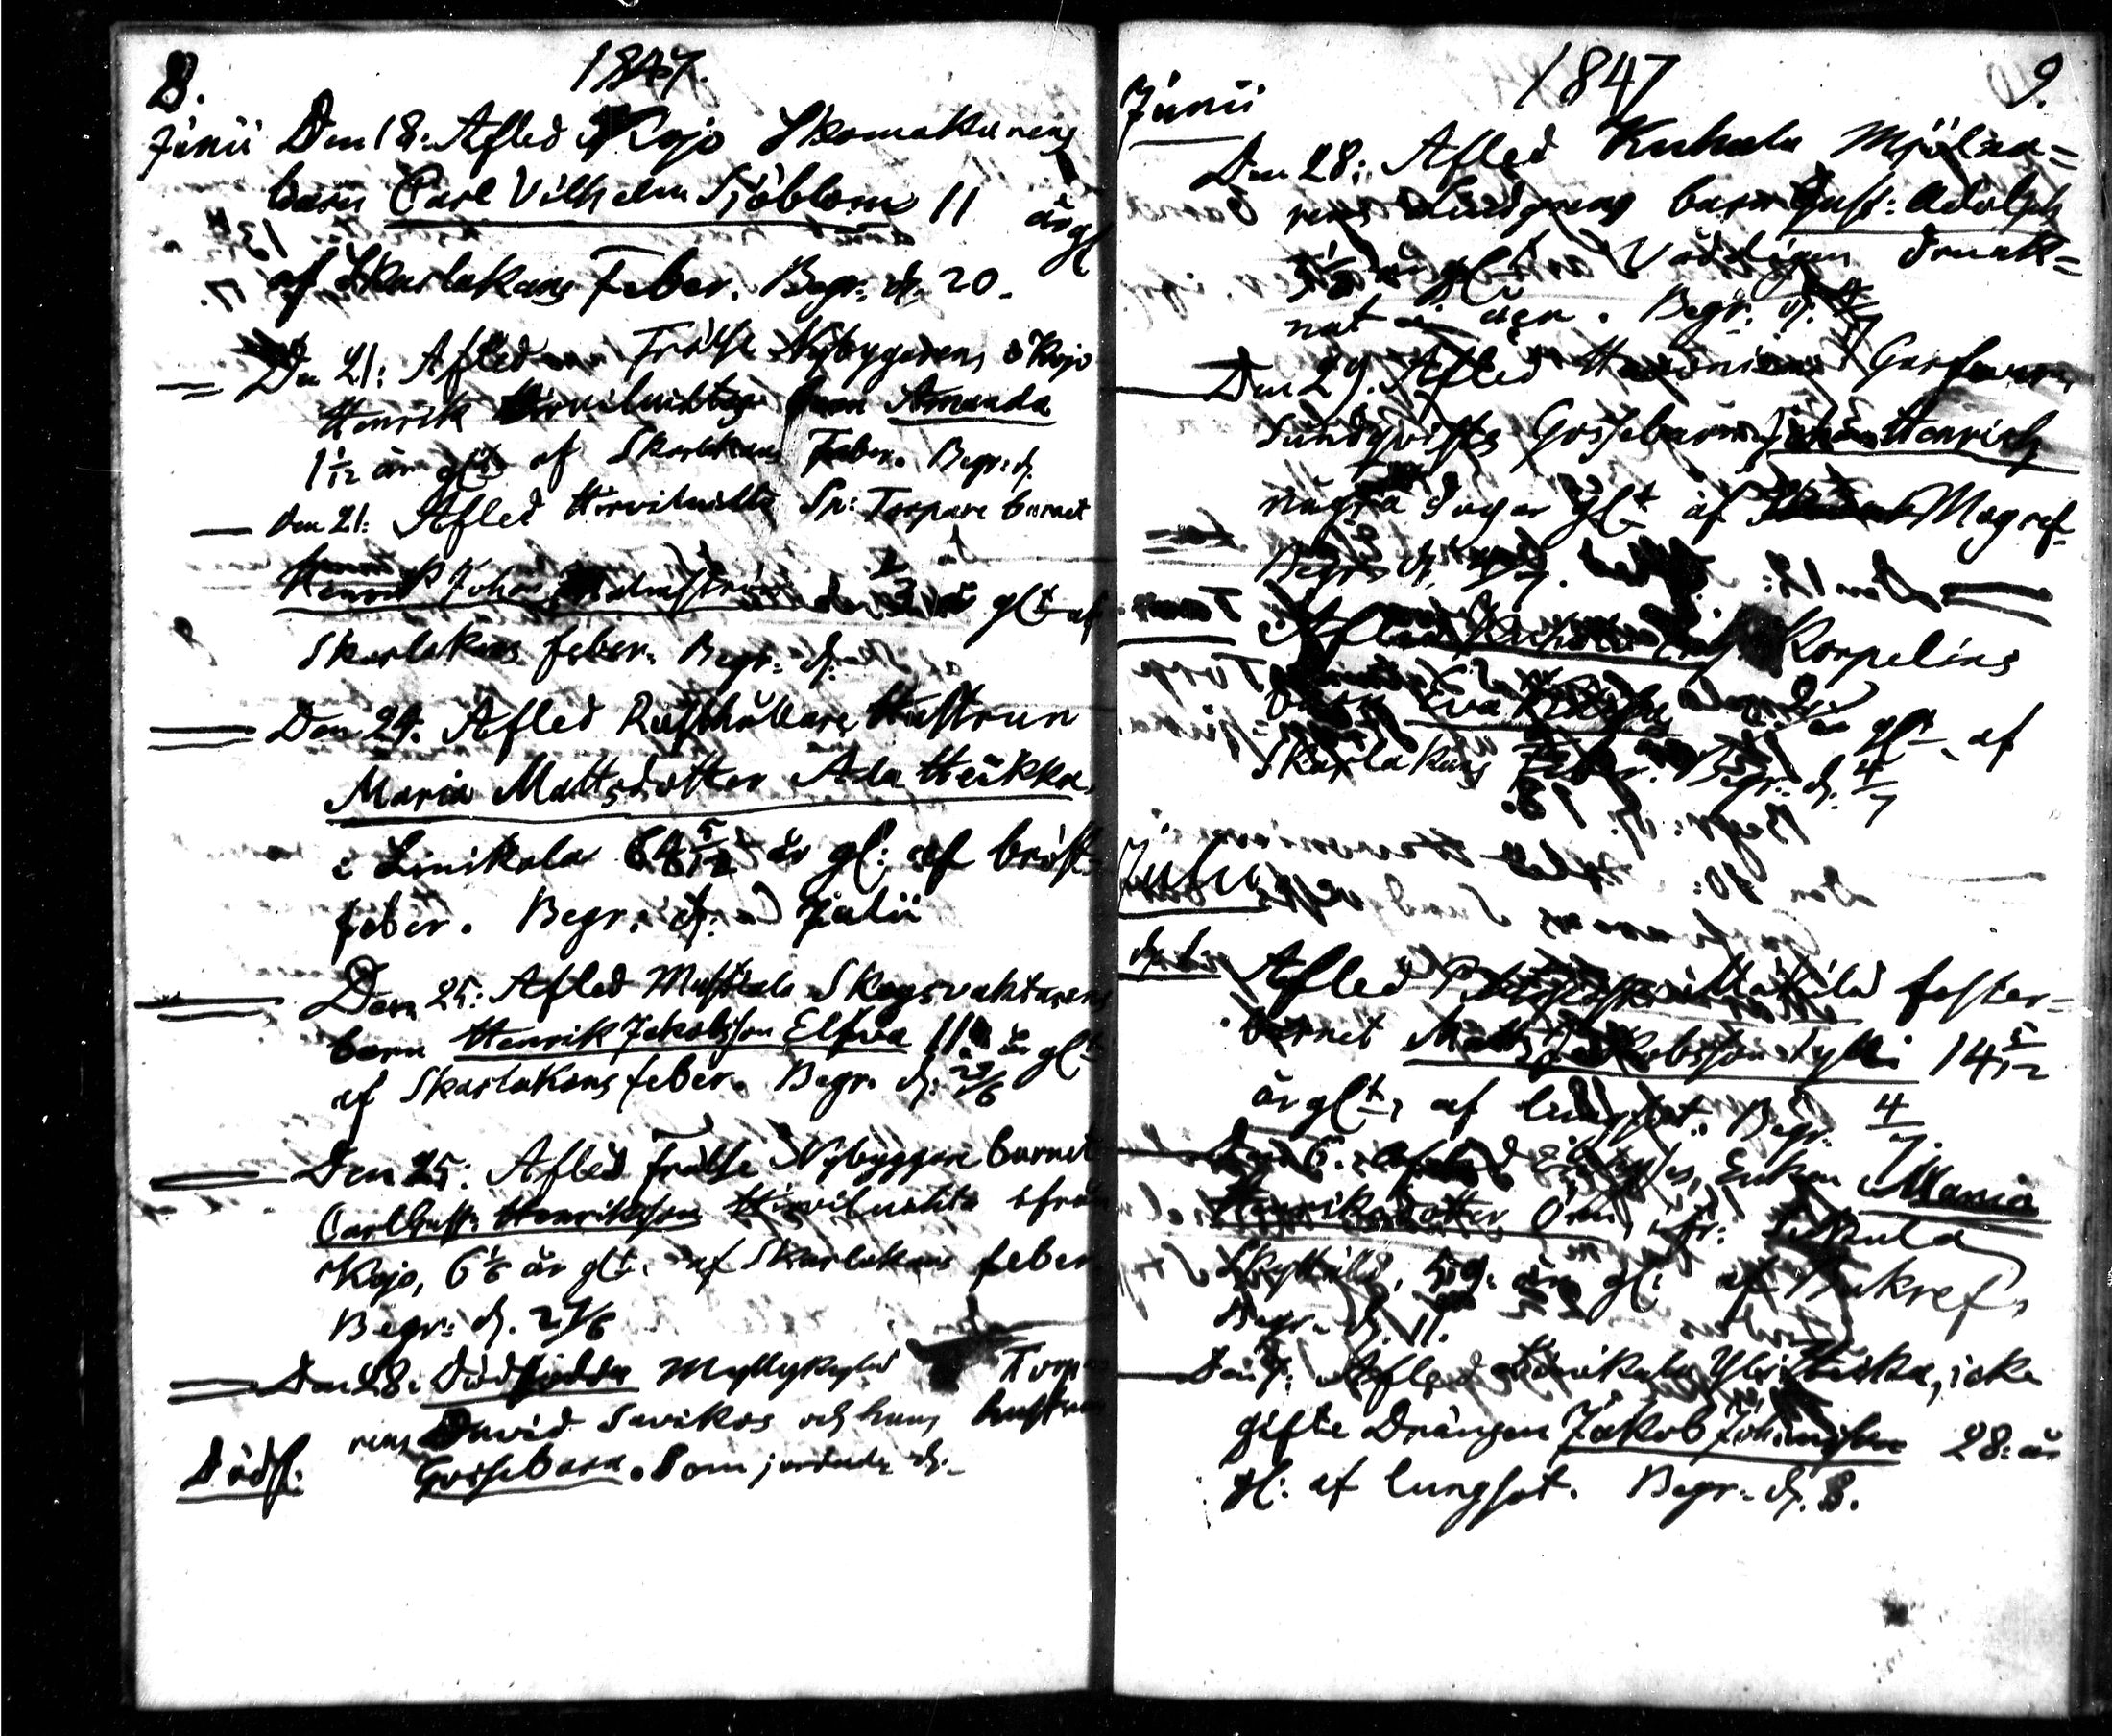 8. 1847.
Junii Den 18: Afled Kojo Skomakarens
barn Carl Vilhelm Sjöblom 11 år gl
af Skarlakans Feber. Begr. d. 20.
Den 21: Afled Frälse Nybyggarens i Kojo
Henrik Hirviluihta barn Amanda
1 1/12 år glt af Skarlakans Feber. Begr: d.
den 21: Afled Hirviluihta Sn: Torpare barnet
Henrik Johan glt af
Skarlakans feber. Begr. d.
Den 24. Afled Rusthållare Hustrun
Maria Mattsdotter Ala Heikka
i Linikala 64 5/12 år gl: af bröst-
feber. Begr. d. Julii
Den 25: Afled Mustiala Skogsvaktarens
barn Henrik Jakobsson Elfva 11 år glt
af Skarlakans feber. Begr. d. 29/6
Den 25: Afled Frälse Nybyggare barnet
Carl Gust. Henriksson Hirviluihta ifrån
Kojo, 6 1/6 år glt. af Skarlakans feber
Begr: d. 27/6
Den 28: Dödfödda Myllykylä Torpa-
rens David Savikos och hans hustrus
Dödf: Gossebarn. Som jordades d.
1847 9.
Junii
Den 28: Afled Kuhala Mjölna-
rens Lindgrens barn Gust: Adolph
år glt drunk-
nat i åen. Begr. d. 4/7
Den 29. Afled Garfvaren
Sundqvists Gossebarn Johan Henrich
några dagar glt af Magref.
Begr. d.
Afled Korpelins
barn Eva år glt. af
Skarlakans Feber. Begr. d. 4/7
Julii
d. 1. Afled foster-
barnet Matts Jakobsson 14 5/12
år glt, af lungsot. Begr. 4/7.
Den 6. Enkan Maria
Henriksdotter Örn,
59. år gl: af Bukref,
Begr. d. 11.
Den 7. Afled Linikala Yli Heikka, icke
gifte Drängen Jakob Johansson 28: år
gl: af lungsot. Begr. d. 8.